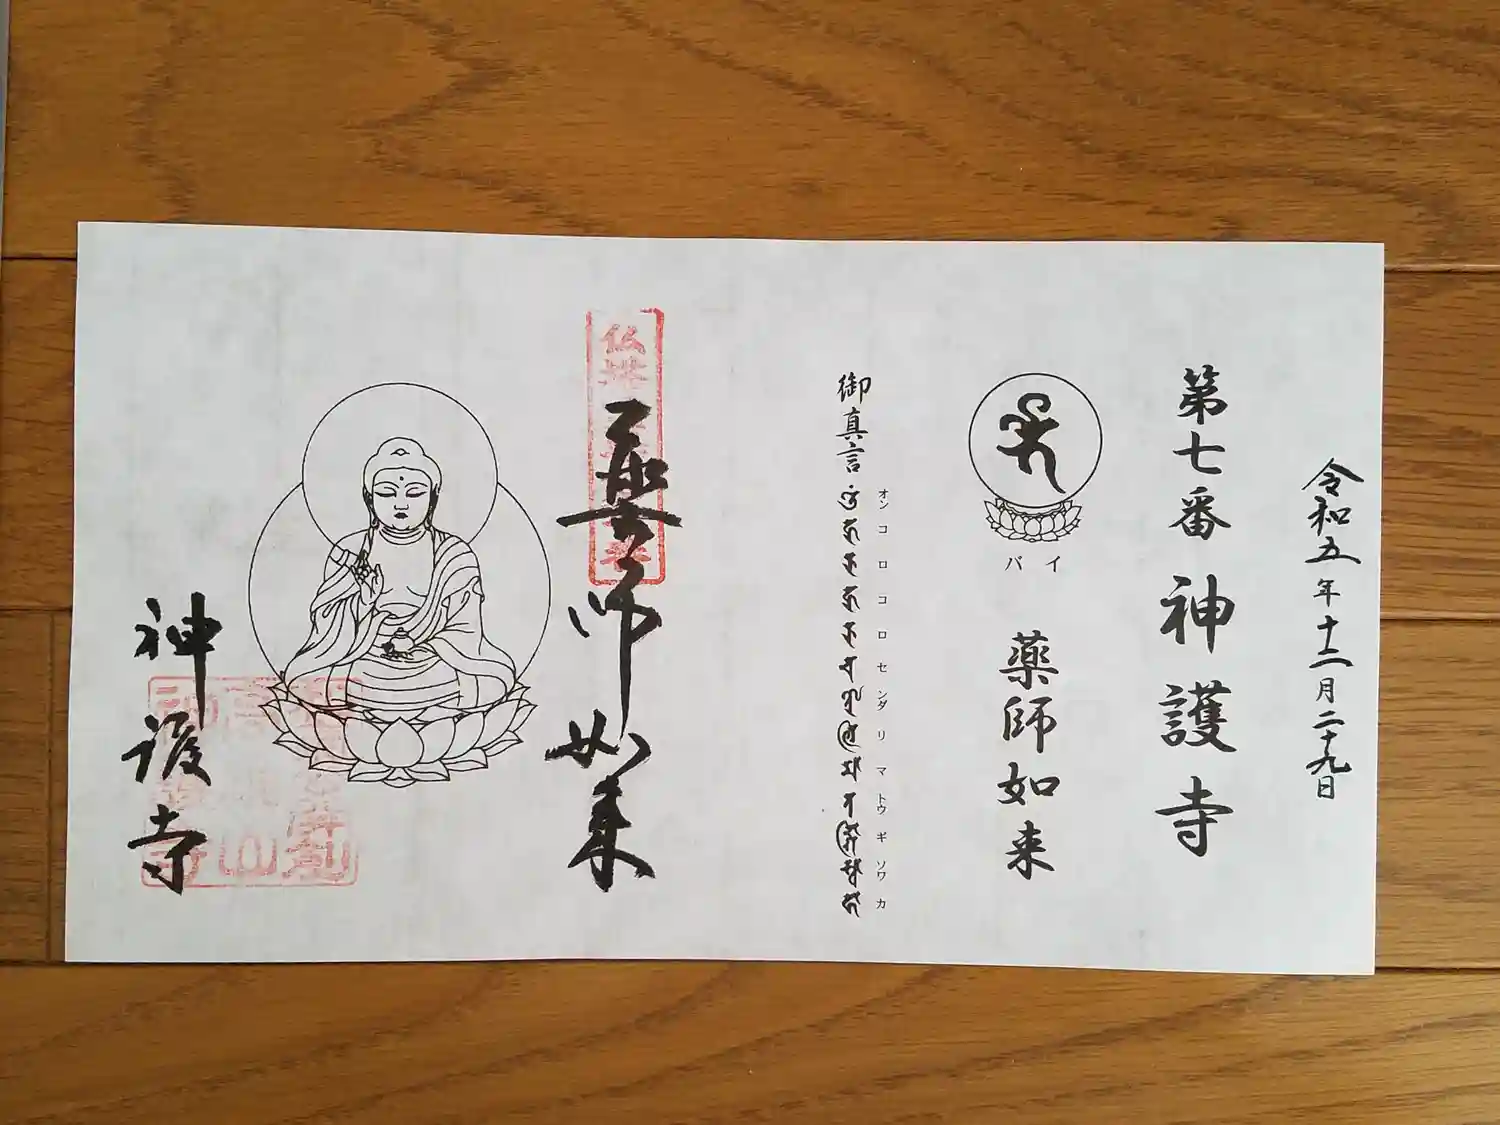 令和五年十二月二十九日
第七番 神護寺
バイ
薬師如来
御真言
オン コロコロ センダリ マトウギ ソワカ
薬師如来
神護寺